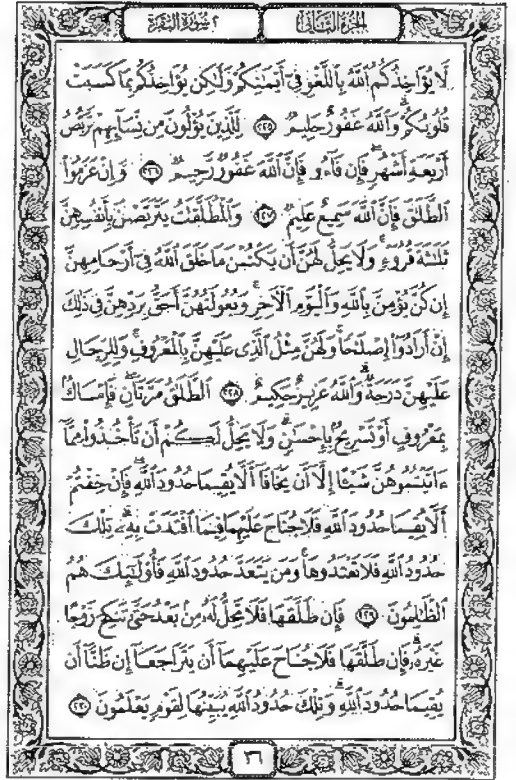 الجزء الثاني
٢ سورة البقرة
لَّا يُؤَاخِذُكُمُ ٱللَّهُ بِٱللَّغْوِ فِىٓ أَيْمَٰنِكُمْ وَلَٰكِن يُؤَاخِذُكُم بِمَا كَسَبَتْ
قُلُوبُكُمْ وَٱللَّهُ غَفُورٌ حَلِيمٌ ٢٢٥ لِّلَّذِينَ يُؤْلُونَ مِن نِّسَآئِهِمْ تَرَبُّصُ
أَرْبَعَةِ أَشْهُرٍ فَإِن فَآءُو فَإِنَّ ٱللَّهَ غَفُورٌ رَّحِيمٌ ٢٢٦ وَإِنْ عَزَمُوا۟
ٱلطَّلَٰقَ فَإِنَّ ٱللَّهَ سَمِيعٌ عَلِيمٌ ٢٢٧ وَٱلْمُطَلَّقَٰتُ يَتَرَبَّصْنَ بِأَنفُسِهِنَّ
ثَلَٰثَةَ قُرُوٓءٍ وَلَا يَحِلُّ لَهُنَّ أَن يَكْتُمْنَ مَا خَلَقَ ٱللَّهُ فِىٓ أَرْحَامِهِنَّ
إِن كُنَّ يُؤْمِنَّ بِٱللَّهِ وَٱلْيَوْمِ ٱلْءَاخِرِ وَبُعُولَتُهُنَّ أَحَقُّ بِرَدِّهِنَّ فِى ذَٰلِكَ
إِنْ أَرَادُوٓا۟ إِصْلَٰحًا وَلَهُنَّ مِثْلُ ٱلَّذِى عَلَيْهِنَّ بِٱلْمَعْرُوفِ وَلِلرِّجَالِ
عَلَيْهِنَّ دَرَجَةٌ وَٱللَّهُ عَزِيزٌ حَكِيمٌ ٢٢٨ ٱلطَّلَٰقُ مَرَّتَانِ فَإِمْسَاكٌۢ
بِمَعْرُوفٍ أَوْ تَسْرِيحٌۢ بِإِحْسَٰنٍ وَلَا يَحِلُّ لَكُمْ أَن تَأْخُذُوا۟ مِمَّآ
ءَاتَيْتُمُوهُنَّ شَيْـًٔا إِلَّآ أَن يَخَافَآ أَلَّا يُقِيمَا حُدُودَ ٱللَّهِ فَإِنْ خِفْتُمْ
أَلَّا يُقِيمَا حُدُودَ ٱللَّهِ فَلَا جُنَاحَ عَلَيْهِمَا فِيمَا ٱفْتَدَتْ بِهِۦ تِلْكَ
حُدُودُ ٱللَّهِ فَلَا تَعْتَدُوهَا وَمَن يَتَعَدَّ حُدُودَ ٱللَّهِ فَأُو۟لَٰٓئِكَ هُمُ
ٱلظَّٰلِمُونَ ٢٢٩ فَإِن طَلَّقَهَا فَلَا تَحِلُّ لَهُۥ مِنۢ بَعْدُ حَتَّىٰ تَنكِحَ زَوْجًا
غَيْرَهُۥ فَإِن طَلَّقَهَا فَلَا جُنَاحَ عَلَيْهِمَآ أَن يَتَرَاجَعَآ إِن ظَنَّآ أَن
يُقِيمَا حُدُودَ ٱللَّهِ وَتِلْكَ حُدُودُ ٱللَّهِ يُبَيِّنُهَا لِقَوْمٍ يَعْلَمُونَ ٢٣٠
٣٦